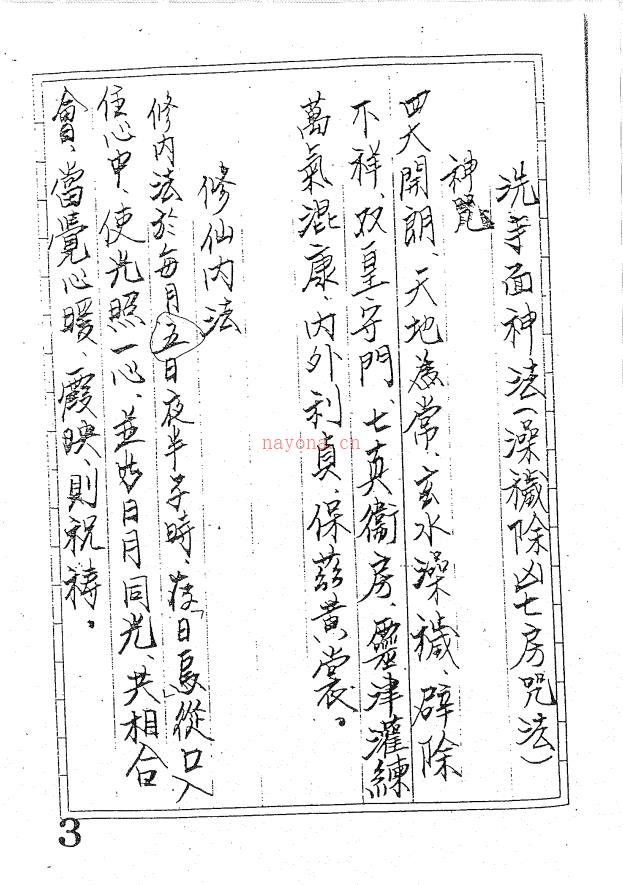 洗手面神法(澡穢除凶七房咒法)
神咒
四大開朗、天地為常、玄水澡穢、辟除
不祥、双皇守門、七真衞房、靈津灌練
萬氣混康、內外利貞、保茲黃裳。
修仙內法
修內法於每月五日夜半子時、「日烏」從口入
住心中、使光照一心、並日月同光、共相合
會、當覺心暖、霞映、則祝禱。
nayona.cn
3